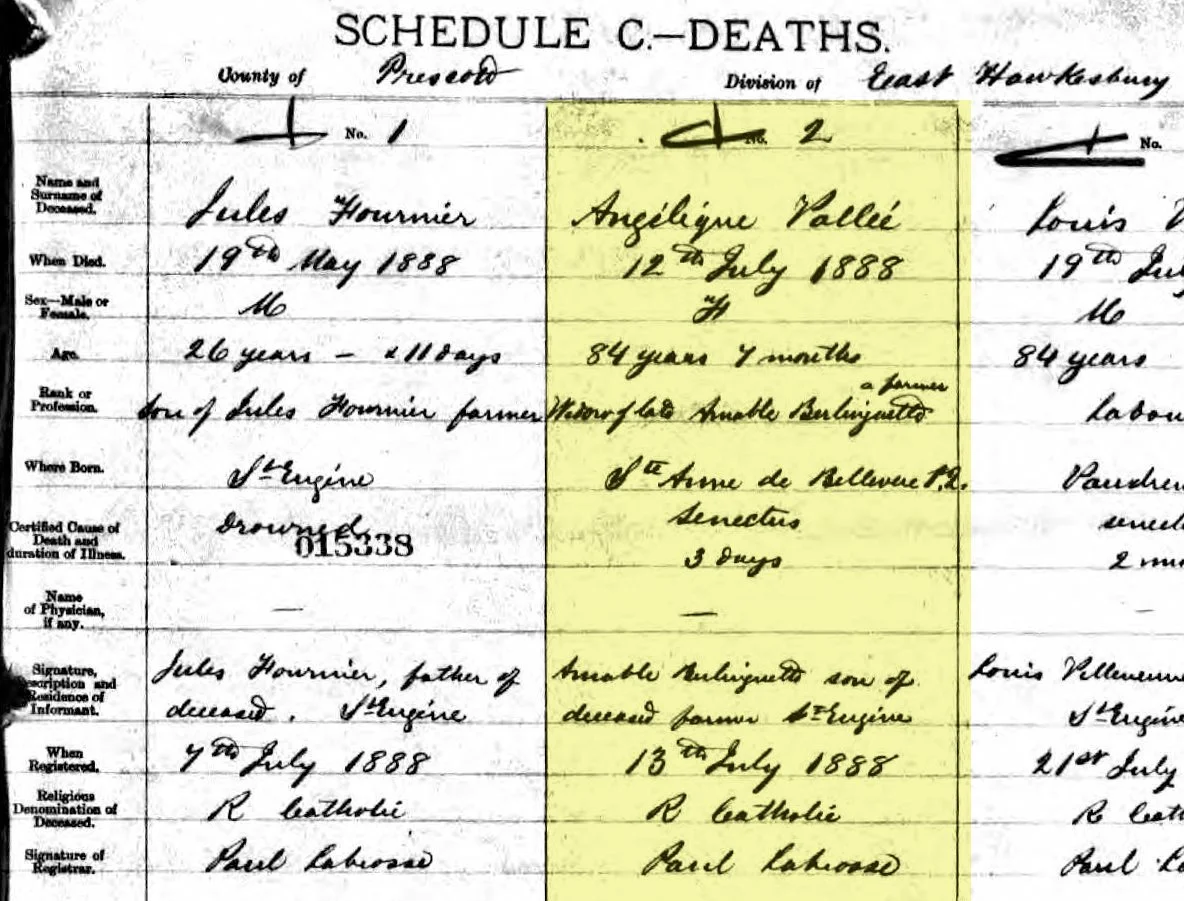 SCHEDULE C.—DEATHS.
County of Prescott Division of East Hawkesbury
No. 1 No. 2 No.
Name and Surname of Deceased. Jules Fournier Angélique Vallée Louis V
When Died. 19th May 1888 12th July 1888 19th Jul
Sex—Male or Female. M F M
Age. 26 years — & 11 days 84 years 7 months 84 years
a farmer
Rank or Profession. Son of Jules Fournier farmer Widow of late Amable Berlinguette Labou
Where Born. St Eugène Ste Anne de Bellevue P.Q. Vaudreu
Certified Cause of Death and duration of Illness. Drowned Senectus senect
015338 3 days 2 mo
Name of Physician, if any. — — —
Signature, Description and Residence of Informant. Jules Fournier, father of Amable Berlinguette son of Louis Villeneuve
deceased. St Eugène deceased farmer St Eugène St Eugène
When Registered. 7th July 1888 13th July 1888 21st July
Religious Denomination of Deceased. R Catholic R Catholic R Cath
Signature of Registrar. Paul Labrosse Paul Labrosse Paul La